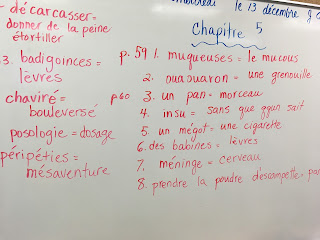 décarcasser=
donner de la peine
étortiller
3. badigoinces=
lèvres
chaviré=
bouleversé
posologie=dosage
péripéties=
mésaventure
le 13 décembre
Chapitre 5
p.59 1. muqueuses = le mucous
2. ouaouaron = une grenouille
p60 3. un pan= morceau
4. insu = sans que qqun sait
5 un mégot = une cigarette
6. des babines = lèvres
7. méninge = cerveau
8. prendre la poudre d'escampette=